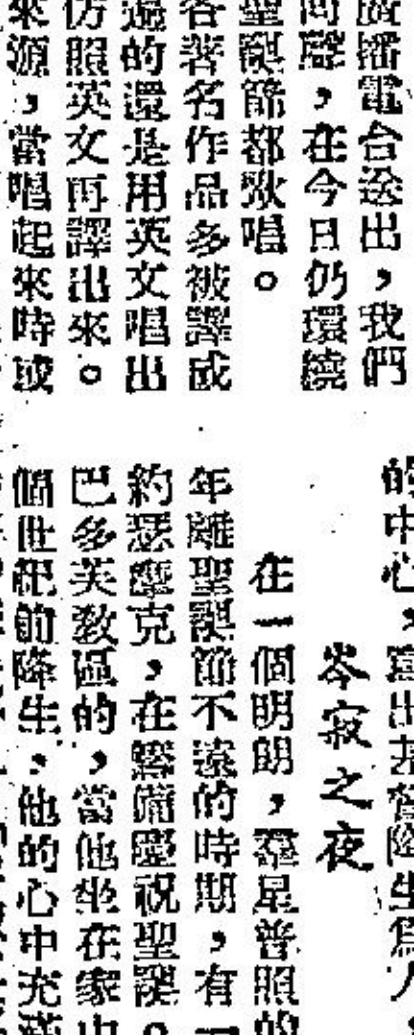 廣播電台送出，我們
同聲，在今日仍環繞
聖誕節都歌唱。
各著名作品多被譯成
過的還是用英文唱出
仿照英文再譯出來。
來源，當唱起來時或
的中心，寫出基督降生為人
岑寂之夜
在一個明朗，羣星普照的
年離聖誕節不遠的時期，有一
約瑟摩克，在籌備慶祝聖誕。
巴多英教區的，當他坐在家中
個世紀前降生，他的心中充滿